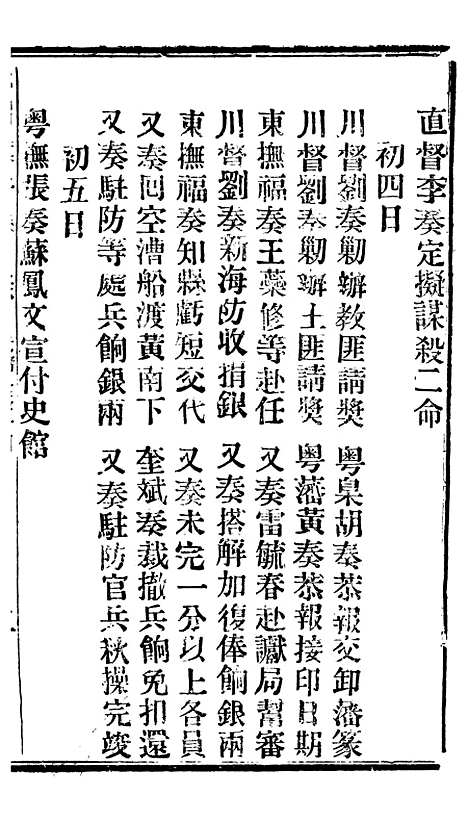 直督李奏定擬謀殺二命
初四日
川督劉奏剿辦教匪請獎　粤臬胡奏恭報交卸藩篆
川督劉奏剿辦土匪請獎　粤藩黃奏恭報接印日期
東撫福奏王蘂修等赴任　又奏雷毓春赴讞局幫審
川督劉奏新海防收捐銀　又奏搭解加復俸餉銀兩
東撫福奏知縣虧短交代　又奏未完一分以上各員
又奏回空漕船渡黃南下　奎斌奏裁撤兵餉免扣還
又奏駐防等處兵餉銀兩　又奏駐防官兵秋操完竣
初五日
粤撫張奏蘇鳳文宣付史館